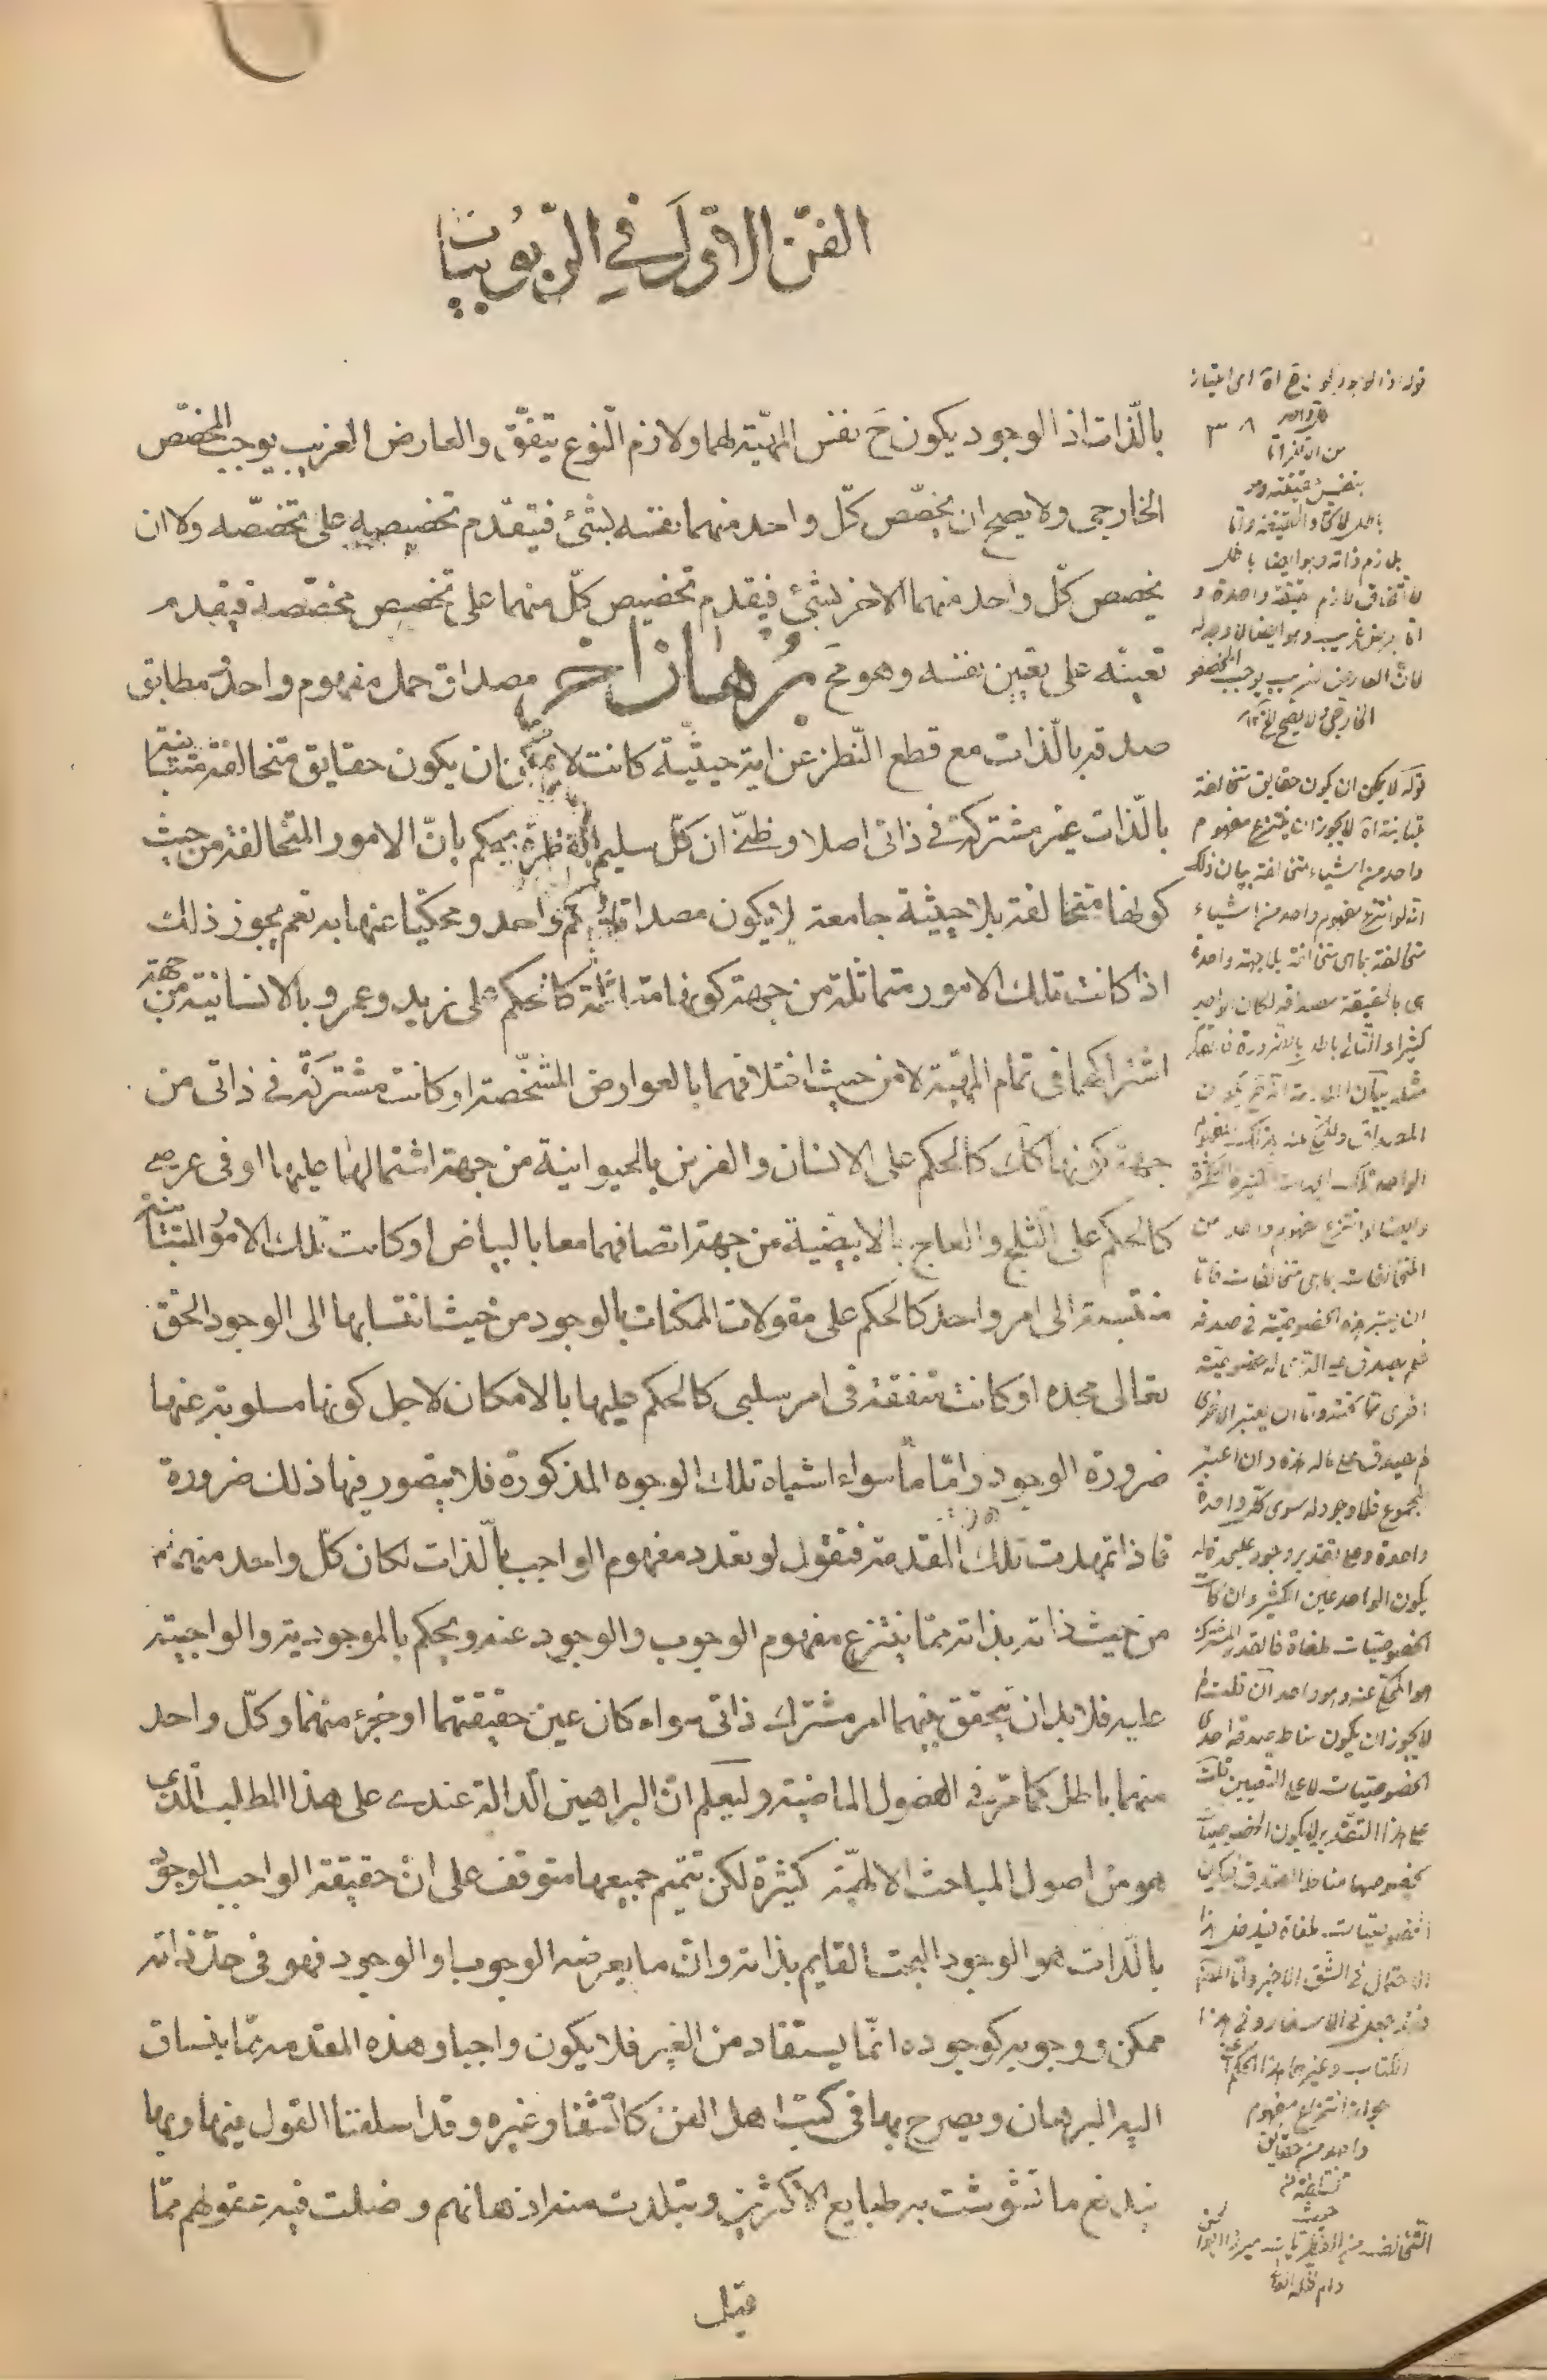 الفنّ الاوّل في الربوبيات
٣٨
بالذّات اذ الوجود يكون ح نفس المهيّة لهما ولازم النّوع يتّفق والعارض الغريب يوجب المخصّص
الخارجى ولا يصح ان يخصّص كلّ واحد منهما نفسه بشئ فيتقدّم تخصيصه على تخصّصه ولا ان
يخصص كلّ واحد منهما الاخر بشئ فيقدم تخصيص كلّ منهما على تخصيص مخصّصه فيقدم
تعينه على تعين نفسه وهو مح برهان اخر مصداق حمل مفهوم واحد ومطابق
صدقه بالذّات مع قطع النّظر عن اية حيثيّة كانت لا يمكن ان يكون حقايق متخالفة متباينة
بالذّات غير مشتركة في ذاتى اصلا وظنّى ان كلّ سليم الفطرة يحكم بانّ الامور المتخالفة من حيث
كونها متخالفة بلا حيثية جامعة لا يكون مصداقا لحكم واحد ومحكيّا عنها به نعم يجوز ذلك
اذا كانت تلك الامور متماثلة من جهة كونها متماثلة كالحكم على زيد وعمرو بالانسانية من جهة
اشتراكهما فى تمام المهيّة لا من حيث اختلافهما بالعوارض المشخّصة او كانت مشتركة في ذاتى من
جهة كونها كك كالحكم على الانسان والفرس بالحيوانية من جهة اشتمالهما عليها او فى عرضى
كالحكم على الثلج والعاج بالابيضيّة من جهة اتصافهما معا بالبياض او كانت تلك الامور المتباينة
منتسبة الى امر واحد كالحكم على مقولات الممكنات بالوجود من حيث انتسابها الى الوجود الحق
تعالى مجده او كانت متفقة فى امر سلبى كالحكم عليها بالامكان لاجل كونها مسلوبة عنها
ضرورة الوجود وامّا ما سواء اشباه تلك الوجوه المذكورة فلا يتصور فيها ذلك ضرورة
فاذا تمهدت تلك المقدمة فنقول لو تعدد مفهوم الواجب بالّذات لكان كلّ واحد منهما
من حيث ذاته بذاته ممّا ينتزع مفهوم الوجوب والوجود عنه ويحكم بالموجودية والواجبية
عليه فلا بد ان يتحقق بينهما امر مشترك ذاتى سواء كان عين حقيقتهما او جزء منهما وكلّ واحد
منهما باطل كما مرّ في الفصول الماضية وليعلم انّ البراهين الّدالة عندى على هذا المطلب الّذى
هو من اصول المباحث الالهيّة كثيرة لكن تتميم جميعها متوقف على انّ حقيقة الواجب الوجود
بالّذات هو الوجود البحت القايم بذاته وان ما يعرضه الوجوب او الوجود فهو فى حدّ ذاته
ممكن ووجوبه كوجوده انّما يستفاد من الغير فلا يكون واجبا وهذه المقدمة ممّا ينساق
اليه البرهان ويصرح بها فى كتب اهل الفن كالشفا وغيره وقد اسلفنا القول فيها وبها
يندفع ما تشوشت به طبايع الاكثرين وتبلدت منه اذهانهم وضلت فيه عقولهم ممّا
قيل
قوله اذ الوجود يكون ح اه اى امتياز
كل واحد
من الاخر اما
بنفس حقيقته وهو
باطل لاتحاد الحقيقة واما
بلازم ذاته وهو ايضا باطل
لاتفاق لازم حقيقة واحدة و
اما بعرض غريب وهو ايضا لا وجه له
لانّ العارض الغريب يوجب المخصص
الخارجى ولا يصح الخ
قوله لا يمكن ان يكون حقايق متخالفة
متباينة اه لا يجوز ان ينتزع مفهوم
واحد من اشياء متخالفة بيان ذلك
انه لو انتزع مفهوم واحد من اشياء
متخالفة بما هى متخالفة بلا جهة واحدة
هى بالحقيقة مصداقه لكان الواحد
كثيرا والتالى باطل بالضرورة فالمقدم
مثله بيان الملازمة انه ح يكون
المصداق والمحكى عنه بذلك المفهوم
الواحد تلك الجهات الكثيرة المتكثرة
وايضا لو انتزع مفهوم واحد من
المتخالفات بما هى متخالفات فاما
ان يعتبر هذه الخصوصية في صدقه
فلم يصدق على الذى له خصوصية
اخرى تخالفه واما ان يعتبر الاخرى
لم يصدق على ماله هذه وان اعتبر
المجموع فلا وجود له سوى كل واحدة
واحدة وعلى تقدير وجود على حدة له
يكون الواحد عين الكثير وان كانت
الخصوصيات ملغاة فالقدر المشترك
هو المحكى عنه وهو واحد ان قلت لم
لا يجوز ان يكون مناط صدقه احدى
الخصوصيات لا على التعيين قلت
على هذا التقدير لا يكون الخصوصيات
بخصوصها مناط الصدق فيكون
الخصوصيات ملغاة فيدخل هذا
الاحتمال في الشق الاخير واما المصنف
فقد جعل في الاسفار وفى هذا
الكتاب وغيرها هذا الحكم اى عدم
جواز انتزاع مفهوم
واحد من حقايق
متخالفة من
حيث
التخالف من الفطريات ميرزا ابو الحسن
دام ظله العالى